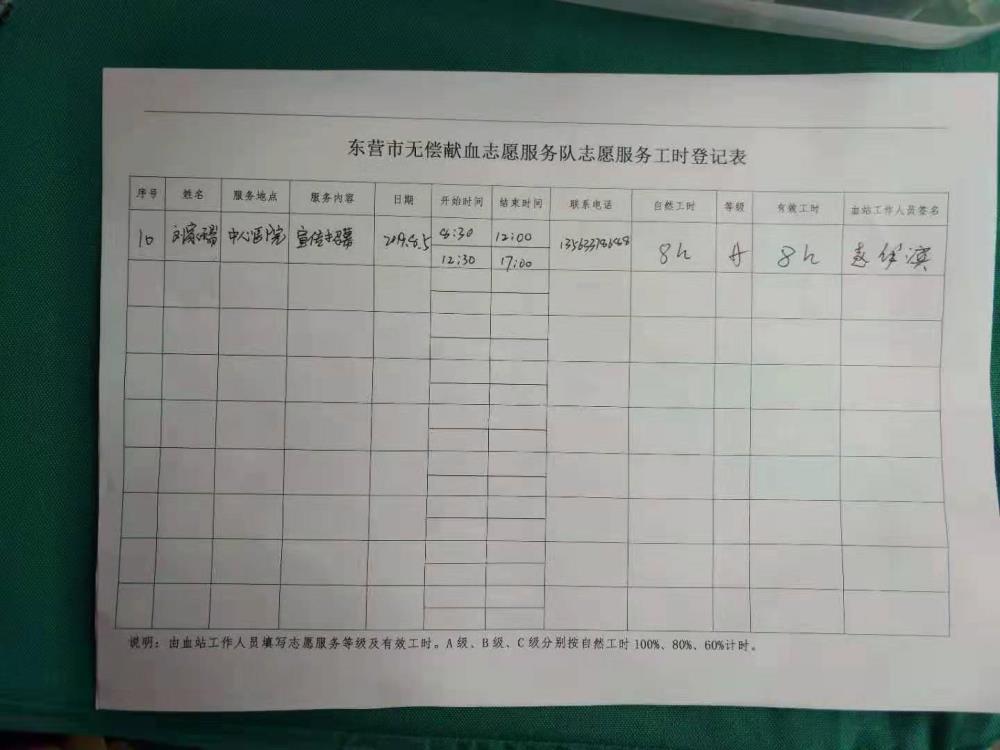 东营市无偿献血志愿服务队志愿服务工时登记表
序号 姓名 服务地点 服务内容 日期 开始时间 结束时间 联系电话 自然工时 等级 有效工时 血站工作人员签名
10 中心医院 宣传招募 2019.8.5 8:30 12:00 8h A 8h
12:30 17:00
说明：由血站工作人员填写志愿服务等级及有效工时。A 级、B 级、C 级分别按自然工时 100%、80%、60%计时。